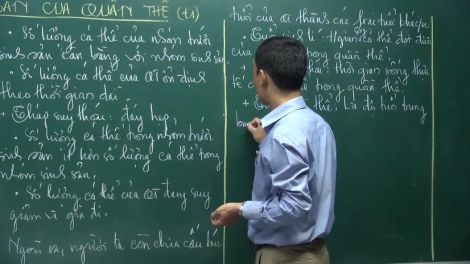 BẢN CỦA QUẦN THỂ (t1)
• Số lượng cá thể của nhóm trước
sinh sản cân bằng với nhóm sinh sản
• Số lượng cá thể của QT ổn định
theo thời gian dài
+ Tháp suy thoái: đáy hẹp,
• Số lượng cá thể trong nhóm trước
sinh sản ít hơn số lượng cá thể trong
nhóm sinh sản,
• Số lượng cá thể của QT đang suy
giảm và già đi.
Ngoài ra, người ta còn chia cấu trúc
tuổi của QT thành các loại tuổi khác
+ Tuổi sinh lí: thời gian có thể đạt
của trong quần thể.
thời gian sống thực
tế trong quần thể.
+ thể, là độ tuổi trung